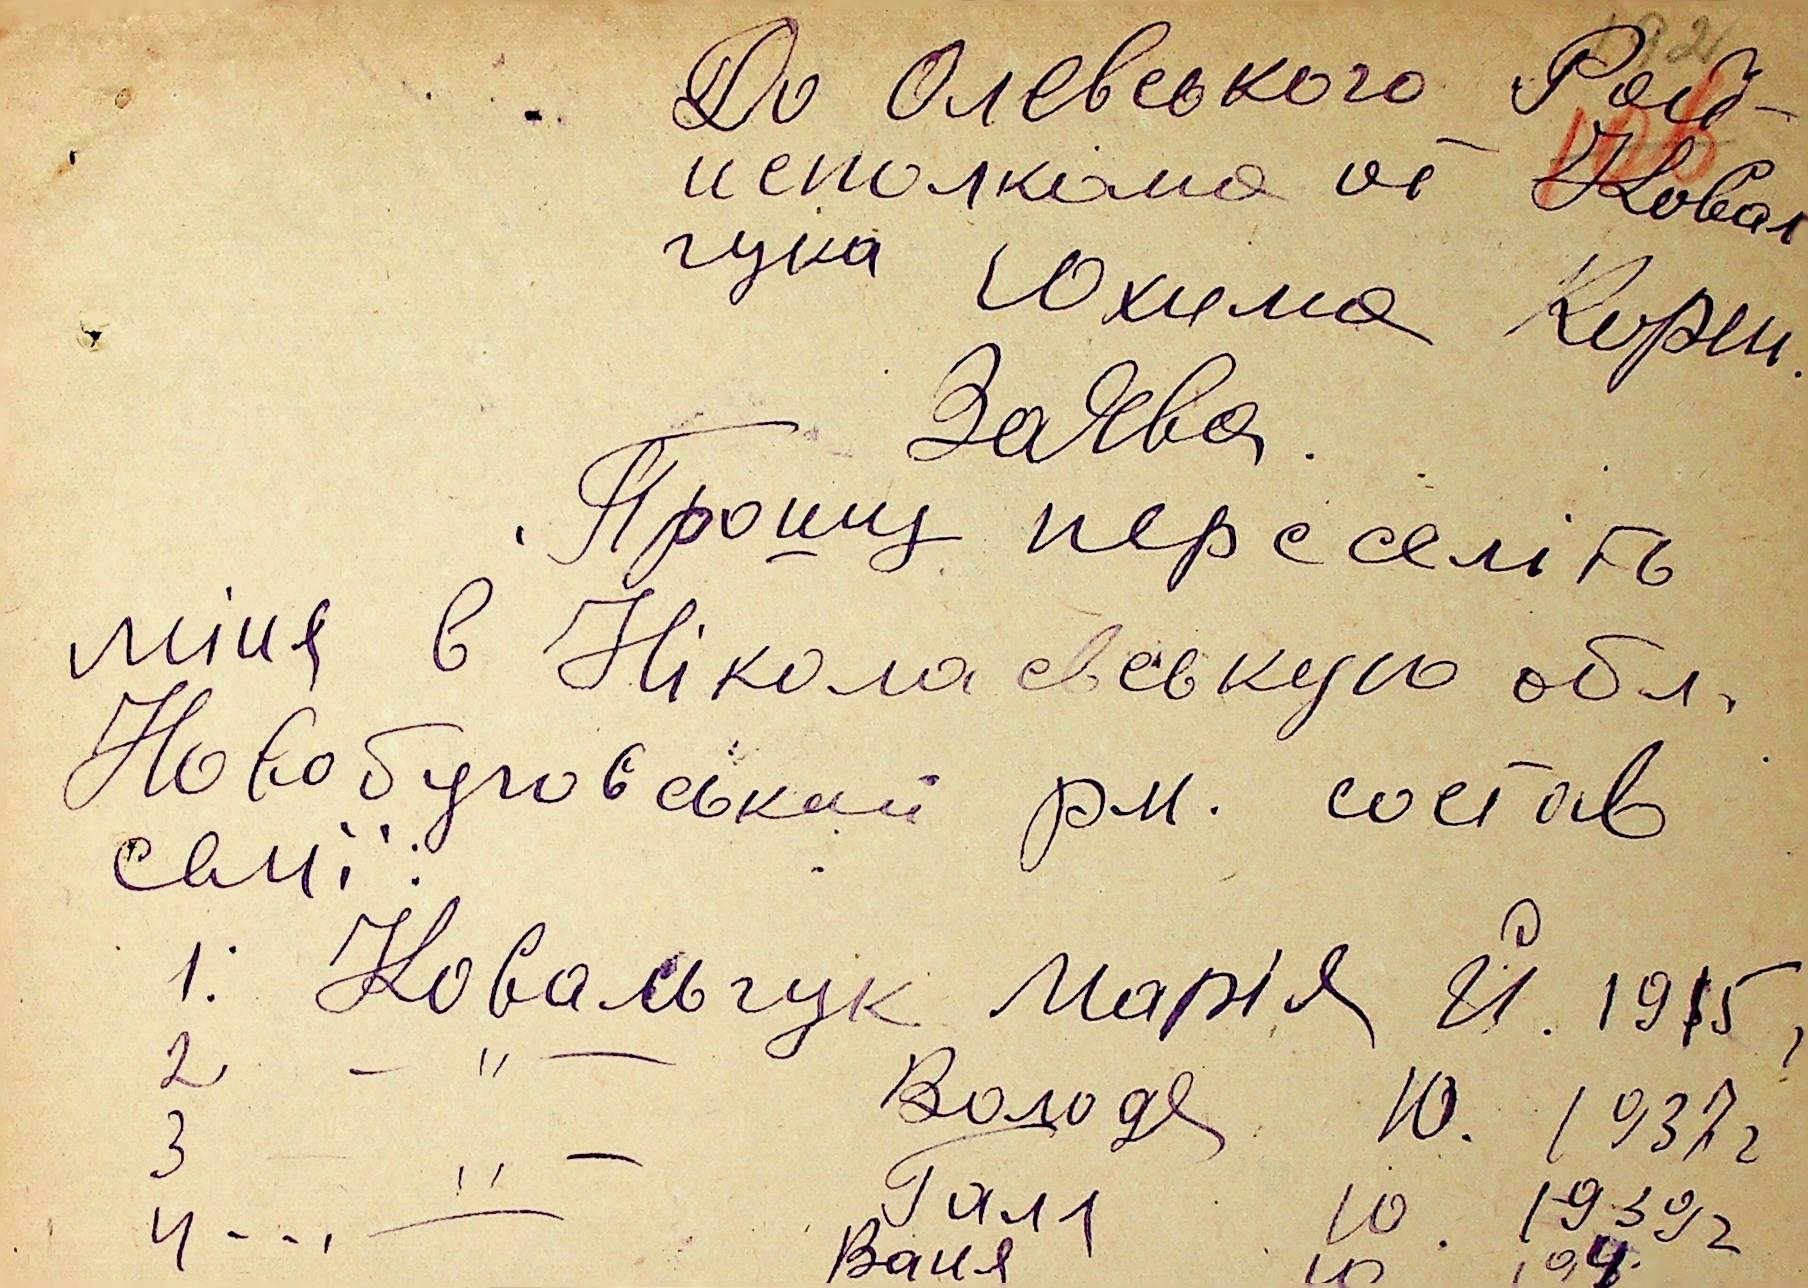 192
126
До Олевського Рай-
исполкома от Ковал
чука Юхима Корн.
Заява.
Прошу переселіть
міня в Ніколаєвськую обл.
Новобуговський рн. состав
семії:
1. Ковальчук Марія Й. 1915,
2 - " - Володя Ю. 1937г
3 - " - Галя Ю. 1939г
4 - - , - Ваня Ю 194